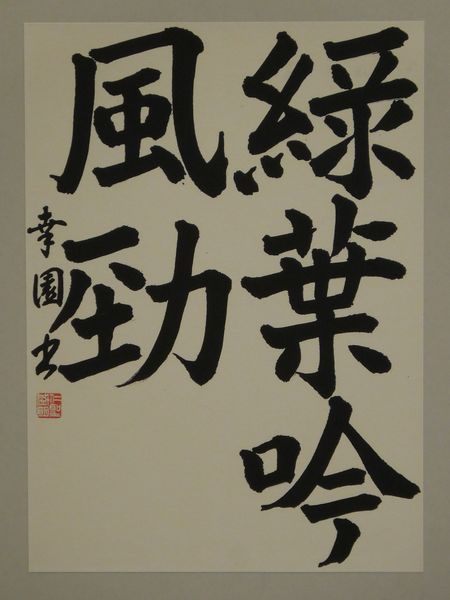 緑葉吟
風勁
幸園書